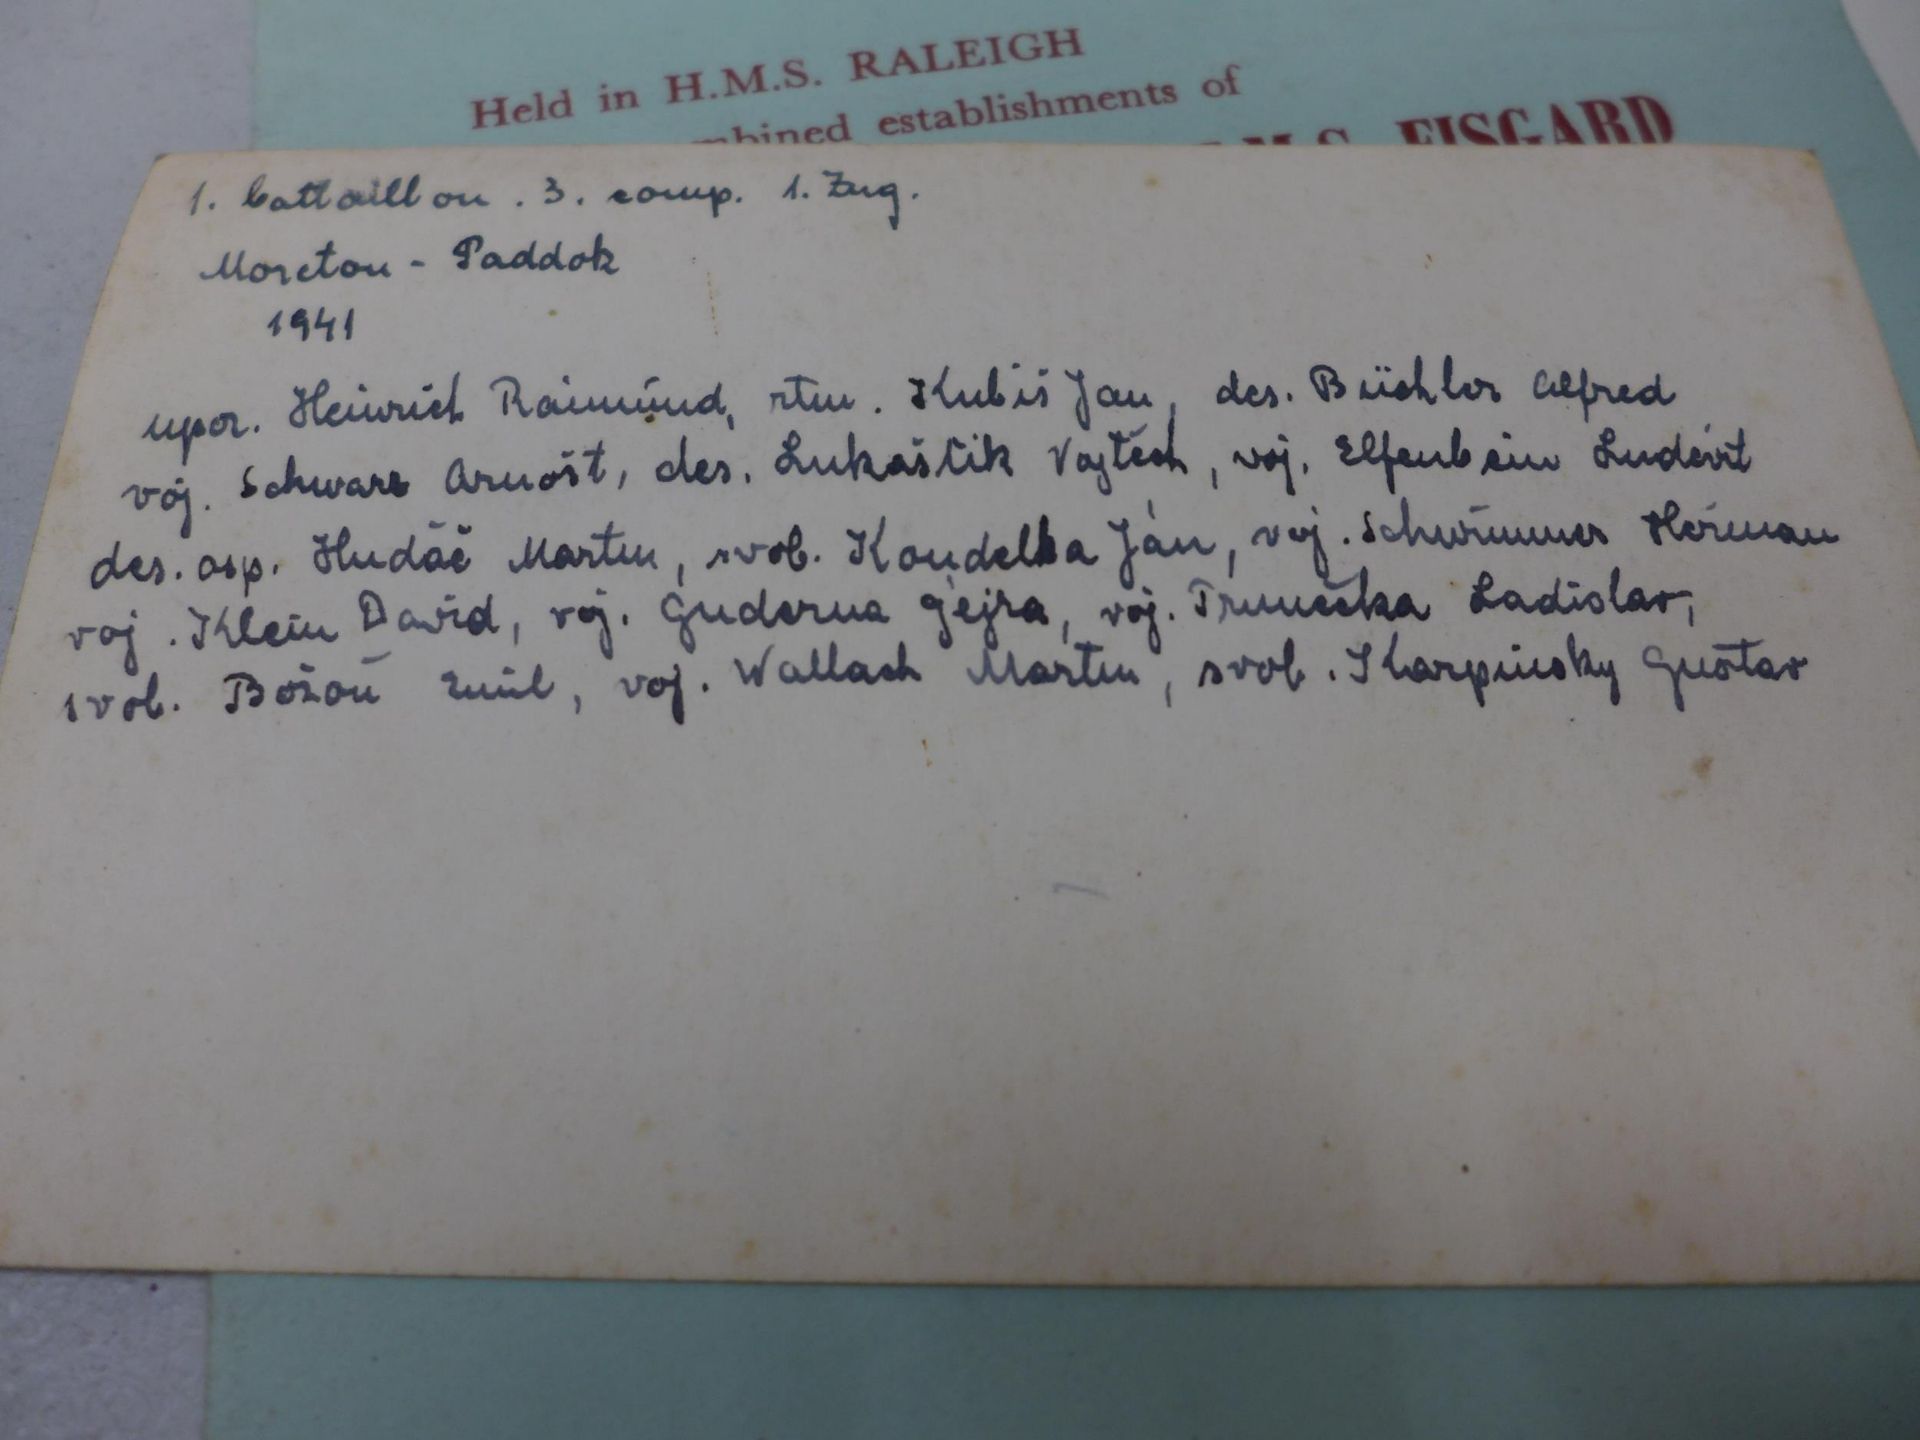 Held in H.M.S. RALEIGH
establishments of
FISGARD
1. battaillon . 3. comp. 1. Zug.
Moreton - Paddok
1941
npor. Heinrich Raimund, rtm. Kubiš Jan, des. Büchler Alfred
voj. Schwarz Arnošt, des. Lukaščik Vojtěch, voj. Elfenbein Ludevít
des. asp. Hudáč Martin, svob. Koudelka Ján, voj. Schwimmer Herman
voj. Klein David, voj. Guderna Gejza, voj. Trunečka Ladislav,
svob. Božoň Emil, voj. Wallach Martin, svob. Karpinsky Gustav